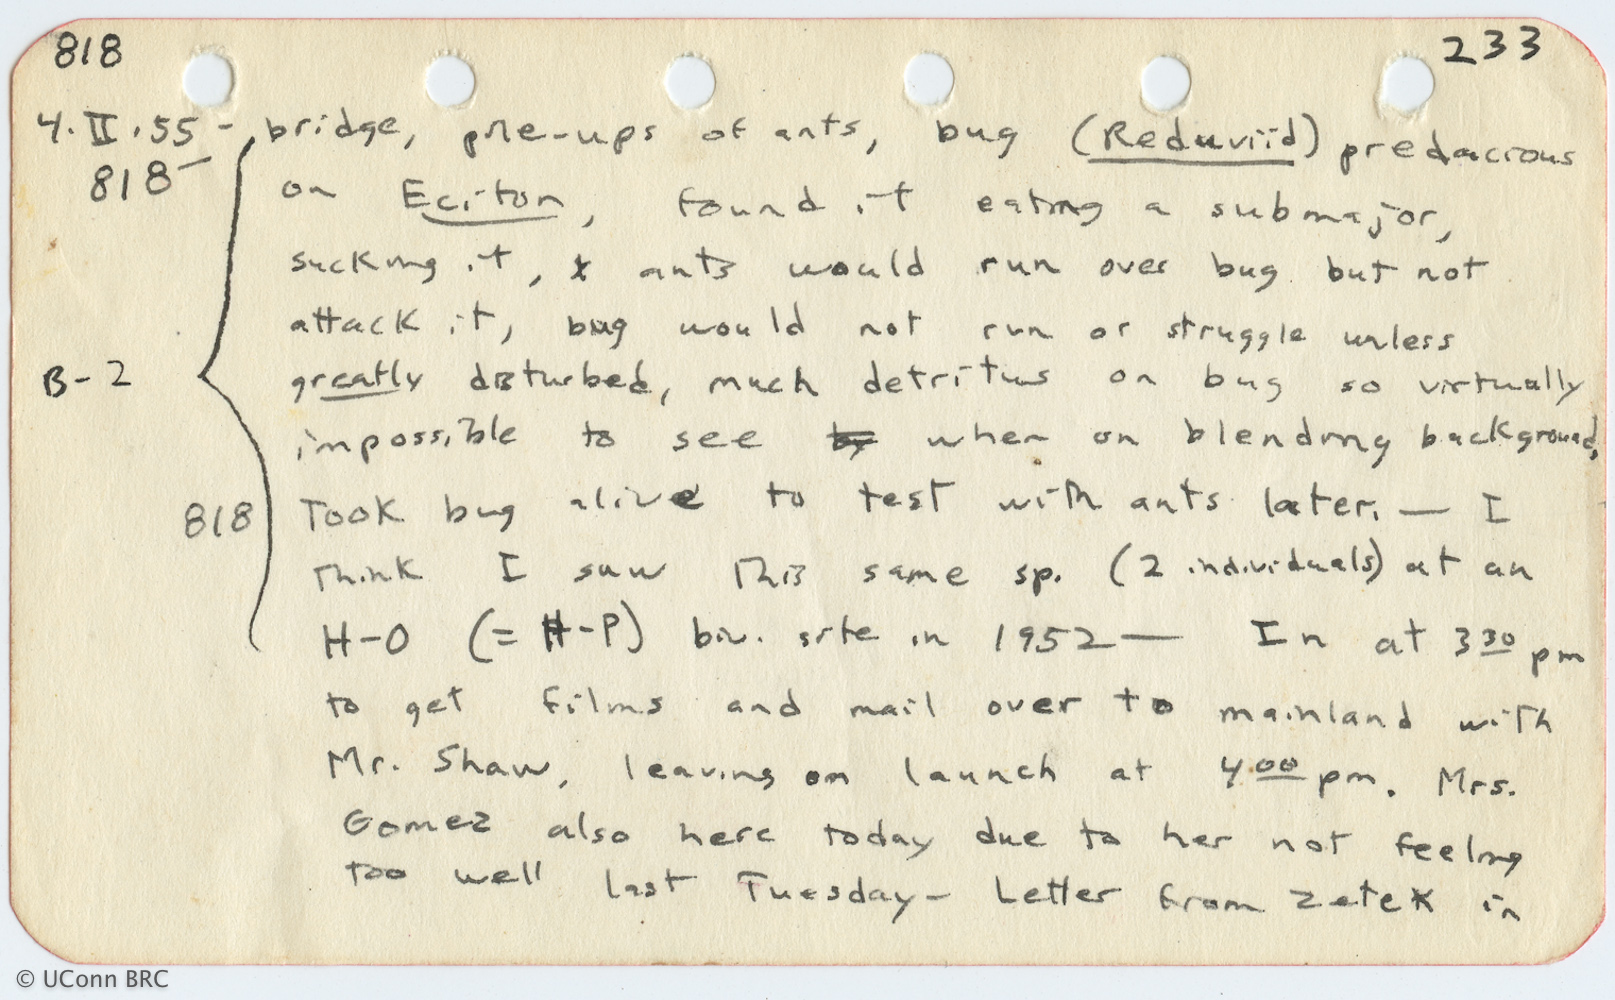 818 233
4.II.55 - bridge, pile-ups of ants, bug (Reduviid) predacrous
818 - on Eciton, found it eating a submajor,
sucking it, & ants would run over bug but not
attack it, bug would not run or struggle unless
B-2 greatly disturbed, much detritus on bug so virtually
impossible to see by when on blending background,
818 Took bug alive to test with ants later. — I
Think I saw This same sp. (2 individuals) at an
H-O (= H-P) biv. site in 1952 — In at 3 30 pm
to get films and mail over to mainland with
Mr. Shaw, leaving on launch at 4 00 pm. Mrs.
Gomez also here today due to her not feeling
too well last Tuesday - Letter from Zetek in
© UConn BRC